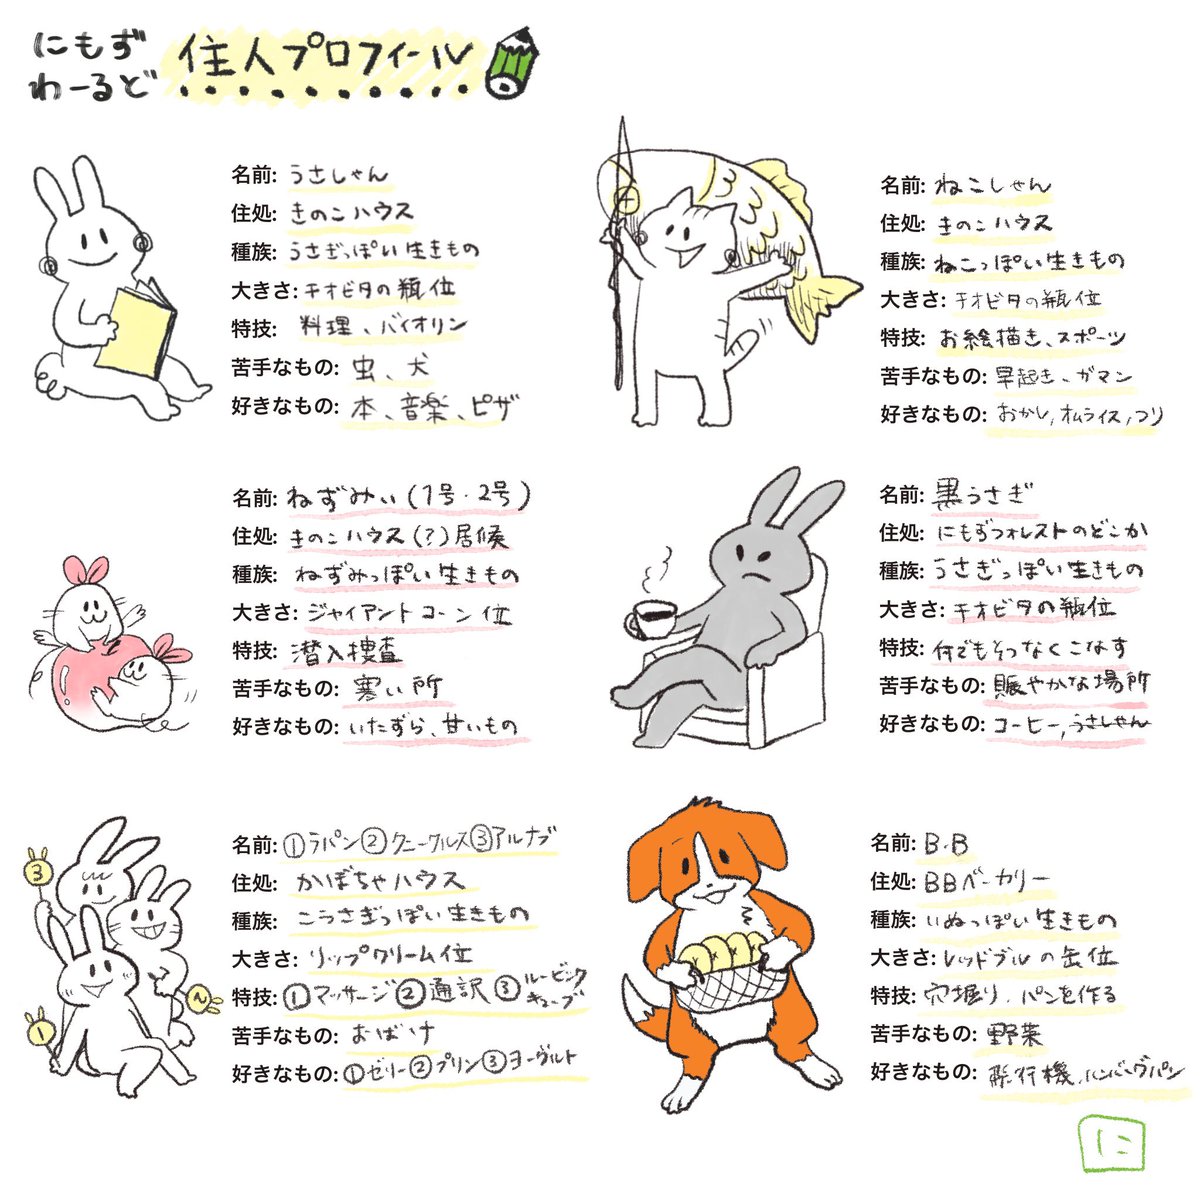 にもず
わーるど
住人プロフィール
名前: うさしゃん
住処: きのこハウス
種族: うさぎっぽい生きもの
大きさ: チオビタの瓶位
特技: 料理、バイオリン
苦手なもの: 虫、犬
好きなもの: 本、音楽、ピザ
名前: ねこしゃん
住処: きのこハウス
種族: ねこっぽい生きもの
大きさ: チオビタの瓶位
特技: お絵描き、スポーツ
苦手なもの: 早起き、ガマン
好きなもの: おかし,オムライス,つり
名前: ねずみぃ(1号・2号)
住処: きのこハウス(?)居候
種族: ねずみっぽい生きもの
大きさ: ジャイアントコーン位
特技: 潜入捜査
苦手なもの: 寒い所
好きなもの: いたずら、甘いもの
名前: 黒うさぎ
住処: にもずフォレストのどこか
種族: うさぎっぽい生きもの
大きさ: チオビタの瓶位
特技: 何でもそつなくこなす
苦手なもの: 賑やかな場所
好きなもの: コーヒー,うさしゃん
3
2
1
名前: ①ラパン②クニークルス③アルナブ
住処: かぼちゃハウス
種族: こうさぎっぽい生きもの
大きさ: リップクリーム位
特技: ①マッサージ②通訳③ルービックキューブ
苦手なもの: おばけ
好きなもの: ①ゼリー②プリン③ヨーグルト
名前: B・B
住処: BBベーカリー
種族: いぬっぽい生きもの
大きさ: レッドブルの缶位
特技: 穴堀り、パンを作る
苦手なもの: 野菜
好きなもの: 飛行機、ハンバーグパン
に